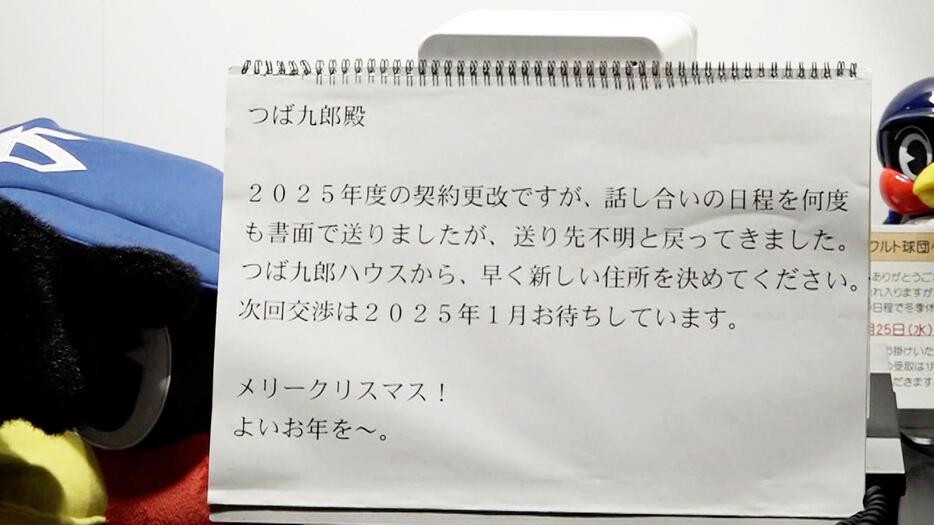 つば九郎殿
２０２５年度の契約更改ですが、話し合いの日程を何度
も書面で送りましたが、送り先不明と戻ってきました。
つば九郎ハウスから、早く新しい住所を決めてください。
次回交渉は２０２５年１月お待ちしています。
メリークリスマス！
よいお年を～。
クルト球団
ありがとうご
れ入りますが
日程で冬季休
月25日(水)
お掛けいた
受取は1月
だきます